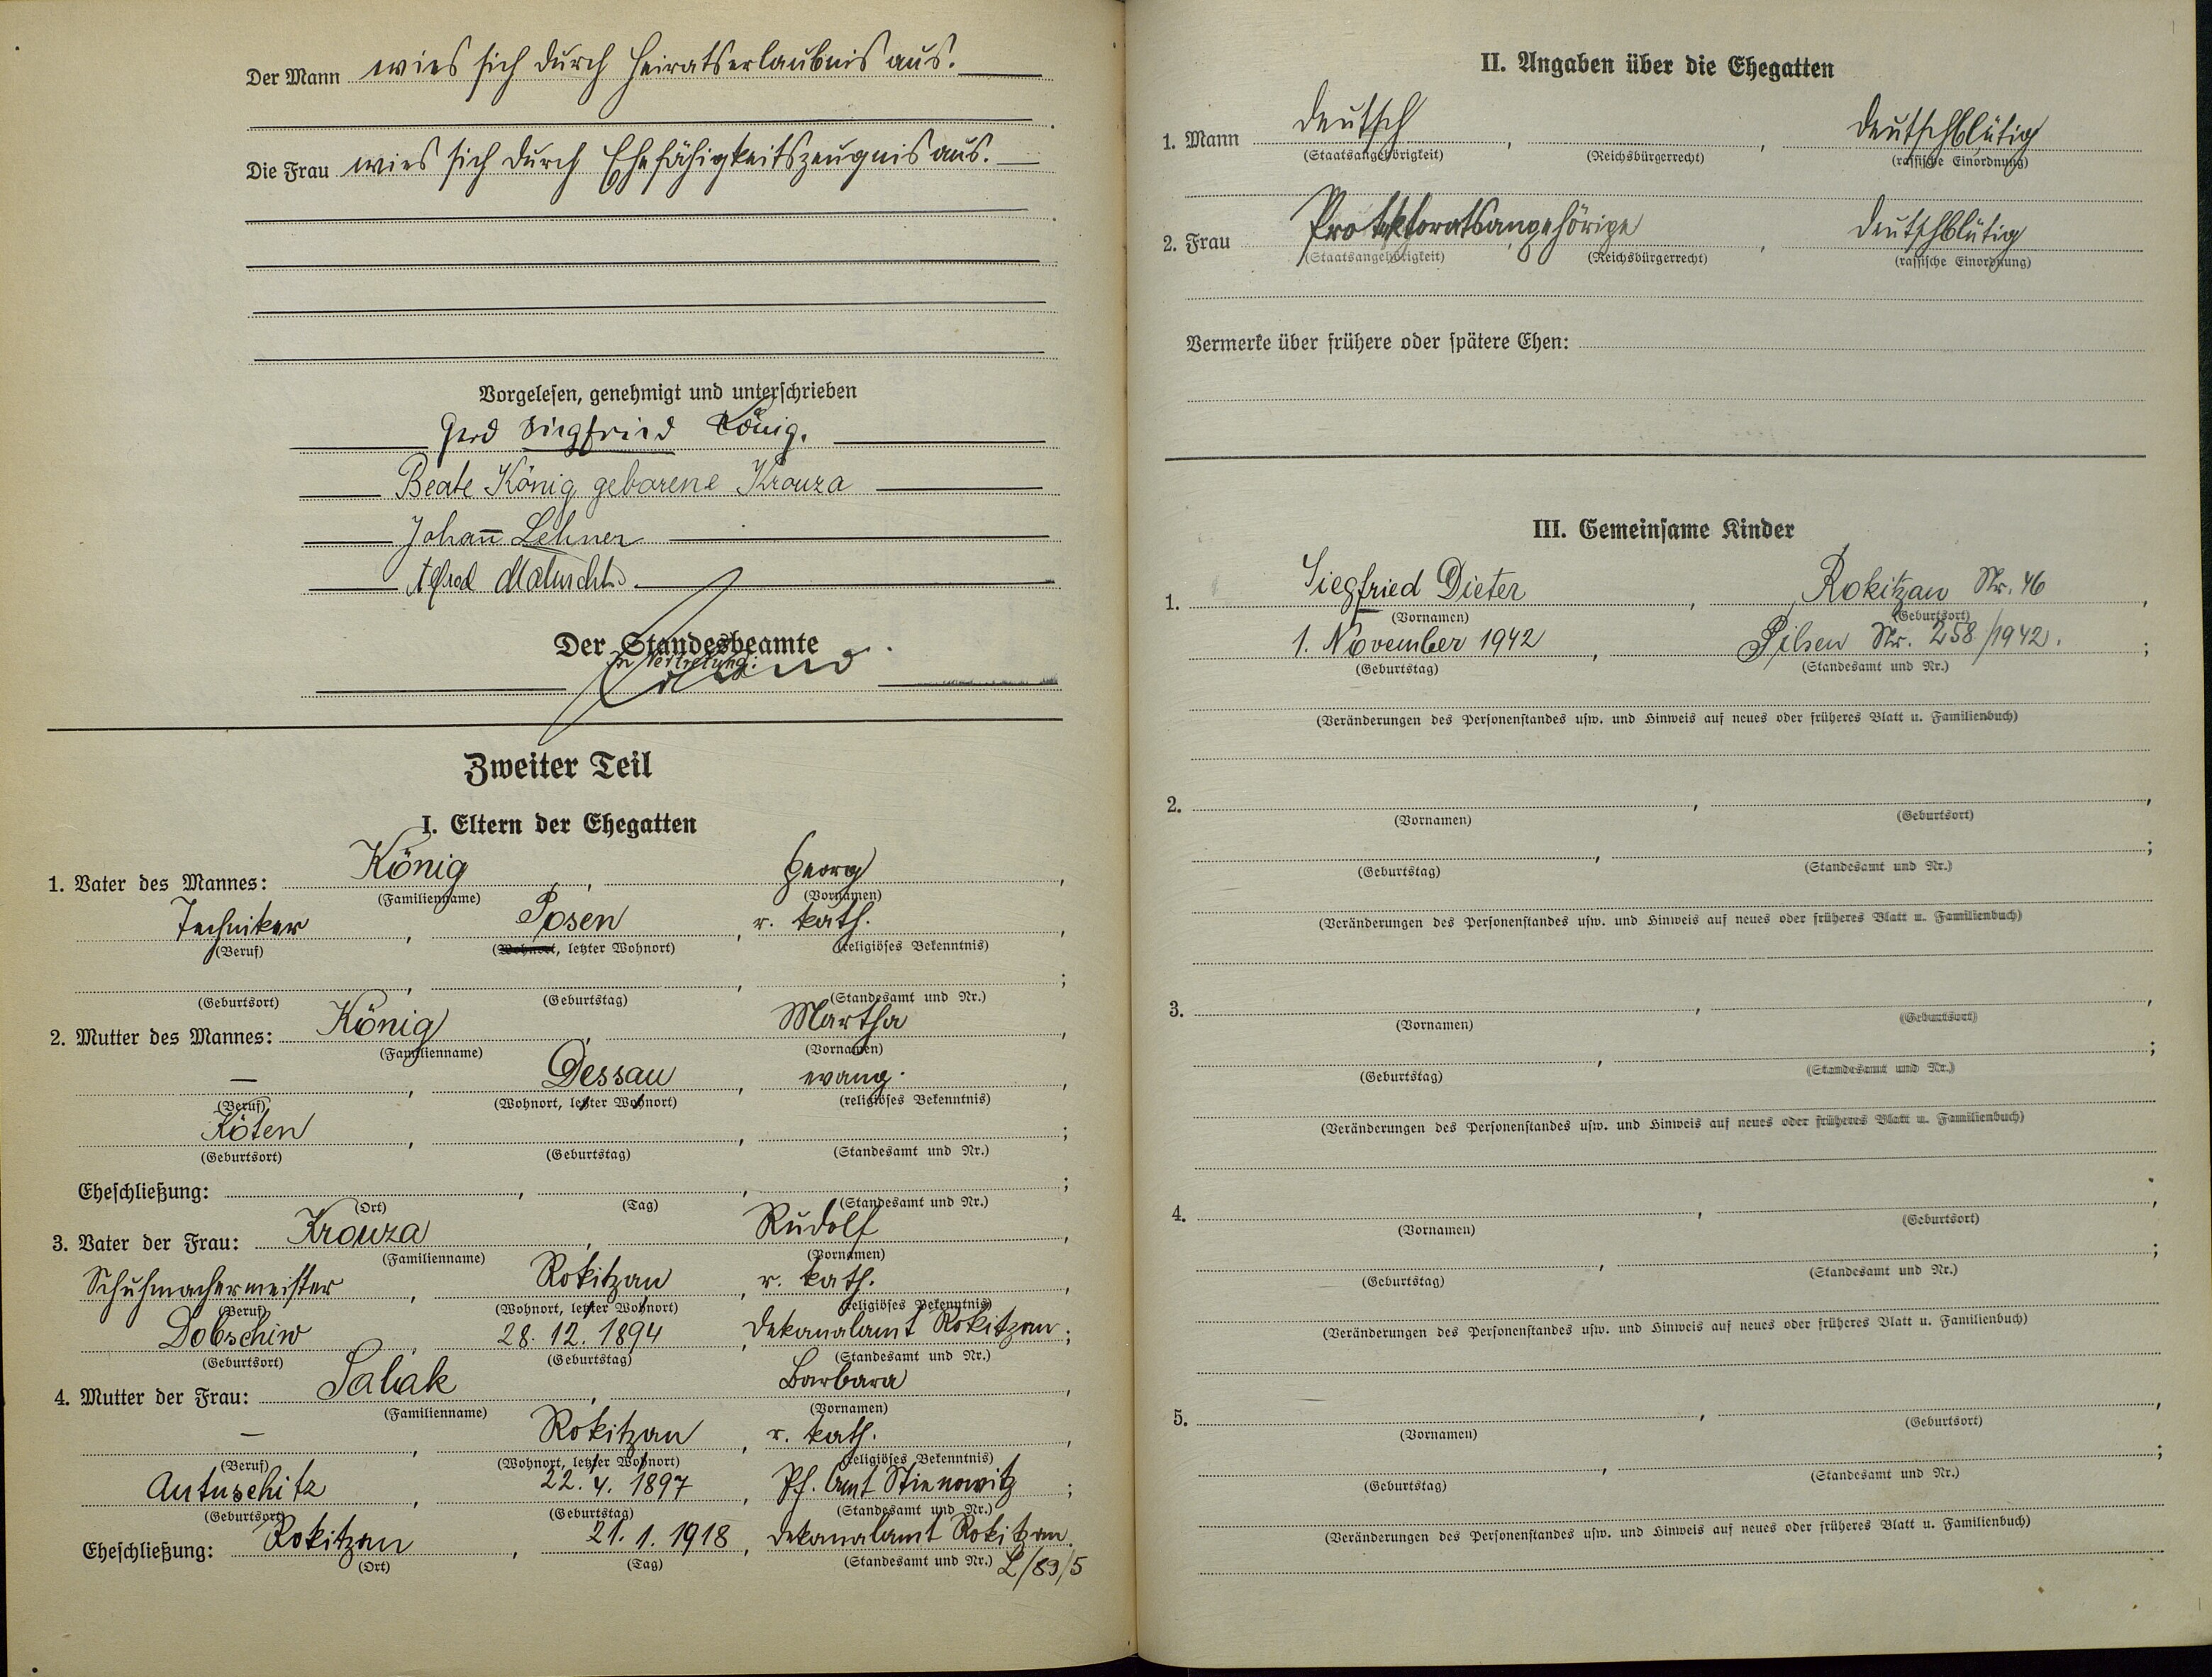 Der Mann wies sich durch Heiratserlaubnis aus.
Die Frau wies sich durch Ehefähigkeitszeugnis aus.
Vorgelesen, genehmigt und unterschrieben
Gerd Siegfried König.
Beate König geborene Krouza
Johann Lehner
Alfred
Der Standesbeamte
In Vertretung:
Zweiter Teil
I. Eltern der Ehegatten
König Georg
1. Vater des Mannes: , ,
(Familienname) (Vornamen)
Techniker , Posen , r. kath. ,
(Beruf) (Wohnort, letzter Wohnort) (religiöses Bekenntnis)
, , ;
(Geburtsort) (Geburtstag) (Standesamt und Nr.)
2. Mutter des Mannes: König , Martha ,
(Familienname) (Vornamen)
— , Dessau , evang. ,
(Beruf) (Wohnort, letzter Wohnort) (religiöses Bekenntnis)
Köten , , ;
(Geburtsort) (Geburtstag) (Standesamt und Nr.)
Eheschließung: , , ;
(Ort) (Tag) (Standesamt und Nr.)
3. Vater der Frau: Krouza , Rudolf ,
(Familienname) (Vornamen)
Schuhmachermeister , Rokitzan , r. kath. ,
(Beruf) (Wohnort, letzter Wohnort) (religiöses Bekenntnis)
Dobschiw , 28. 12. 1894 , Dekanalamt Rokitzan ;
(Geburtsort) (Geburtstag) (Standesamt und Nr.)
4. Mutter der Frau: Salak , Barbara ,
(Familienname) (Vornamen)
— , Rokitzan , r. kath. ,
(Beruf) (Wohnort, letzter Wohnort) (religiöses Bekenntnis)
Autuschitz , 22. 4. 1897 , Pf. Amt Stienowitz ;
(Geburtsort) (Geburtstag) (Standesamt und Nr.)
Eheschließung: Rokitzan , 21. 1. 1918 , Dekanalamt Rokitzan.
(Ort) (Tag) (Standesamt und Nr.) L/89/5
II. Angaben über die Ehegatten
1. Mann deutsch , , deutschblütig
(Staatsangehörigkeit) (Reichsbürgerrecht) (rassische Einordnung)
2. Frau Protektoratsangehörige , deutschblütig
(Staatsangehörigkeit) (Reichsbürgerrecht) (rassische Einordnung)
Vermerke über frühere oder spätere Ehen:
III. Gemeinsame Kinder
1. Siegfried Dieter , Rokitzan Nr. 46 ,
(Vornamen) (Geburtsort)
1. November 1942 , Pilsen Nr. 258/1942. ;
(Geburtstag) (Standesamt und Nr.)
(Veränderungen des Personenstandes usw. und Hinweis auf neues oder früheres Blatt u. Familienbuch)
2. , ,
(Vornamen) (Geburtsort)
, ;
(Geburtstag) (Standesamt und Nr.)
(Veränderungen des Personenstandes usw. und Hinweis auf neues oder früheres Blatt u. Familienbuch)
3. , ,
(Vornamen) (Geburtsort)
, ;
(Geburtstag) (Standesamt und Nr.)
(Veränderungen des Personenstandes usw. und Hinweis auf neues oder früheres Blatt u. Familienbuch)
4. , ,
(Vornamen) (Geburtsort)
, ;
(Geburtstag) (Standesamt und Nr.)
(Veränderungen des Personenstandes usw. und Hinweis auf neues oder früheres Blatt u. Familienbuch)
5. , ,
(Vornamen) (Geburtsort)
, ;
(Geburtstag) (Standesamt und Nr.)
(Veränderungen des Personenstandes usw. und Hinweis auf neues oder früheres Blatt u. Familienbuch)